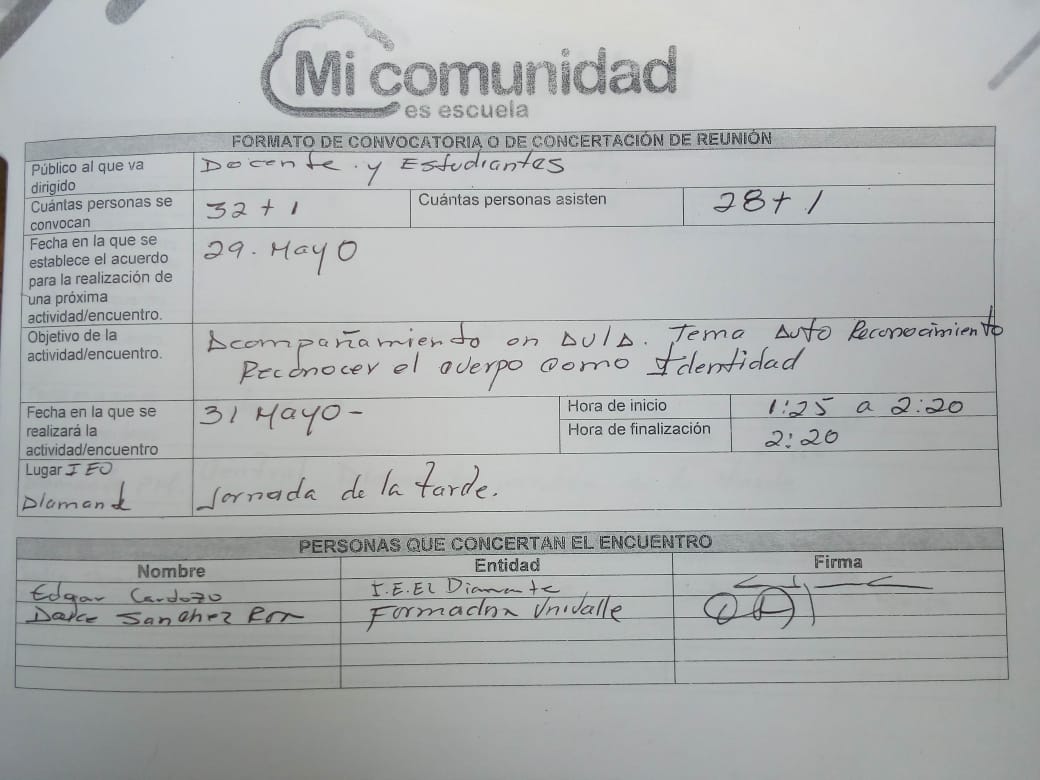 Mi comunidad
es escuela
FORMATO DE CONVOCATORIA O DE CONCERTACIÓN DE REUNIÓN
Público al que va
dirigido
Docente y Estudiantes
Cuántas personas se
convocan
32 + 1
Cuántas personas asisten
28 + 1
Fecha en la que se
establece el acuerdo
para la realización de
una próxima
actividad/encuentro.
29. Mayo
Objetivo de la
actividad/encuentro.
Acompañamiento en Aula. Tema Auto Reconocimiento
Reconocer el cuerpo como Identidad
Fecha en la que se
realizará la
actividad/encuentro
31 Mayo -
Hora de inicio
1:25 a 2:20
Hora de finalización
2:20
Lugar IEO
Diamante
Jornada de la tarde.
PERSONAS QUE CONCERTAN EL ENCUENTRO
Nombre Entidad Firma
Edgar Cardozo I.E. El Diamante
Sanchez Formadora Univalle